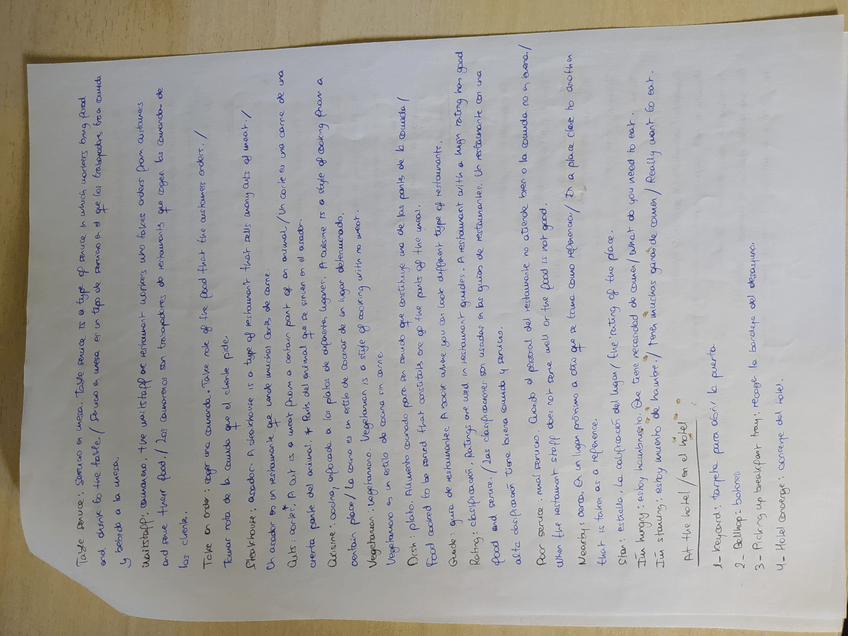 Table service: Servicio en mesa. Table service is a type of service in which workers bring food
and drinks to the table. / Servicio en mesa es un tipo de servicio en el que los trabajadores traen comida
y bebida a la mesa.
Waitstaff: camareros. The waitstaff are restaurant workers who takes orders from customers
and serve their food. / Los camareros son trabajadores de restaurante que cogen las comandas de
los cliente.
Take an order: coger una comanda. Take note of the food that the customers orders. /
Tomar nota de la comida que el cliente pide.
Steakhouse: asador. A steakhouse is a type of restaurant that sells many cuts of meat. /
Un asador es un restaurante que vende muchos cortes de carne
Cuts: cortes. A cut is a meat from a certain part of an animal / Un corte es una carne de una
cierta parte del animal. * Parts del animal que se sirven en el asador.
Cuisine: cocina, enfocado a los platos de diferentes lugares. A cuisine is a style of cooking from a
certain place / La cocina es un estilo de cocinar de un lugar determinado.
Vegetarian: vegetariano. Vegetarian is a style of cooking with no meat.
Vegetariano es un estilo de cocina sin carne.
Dish: plato. Alimento cocinado para ser servido que constituye una de las partes de la comida /
Food cooked to be served that constituts one of the parts of the meal.
Guide: guía de restaurantes. A source where you can look different type of restaurante.
Rating: clasificación. Ratings are used in restaurant guides. A restaurant with a high rating has good
food and service. / Las clasificaciones son usadas en las guías de restaurantes. Un restaurante con una
alta clasificación tiene buena comida y servicio.
Poor service: mal servicio. Cuando el personal del restaurante no atiende bien o la comida no es buena. /
When the restaurant staff does not serve well or the food is not good.
Nearby: cerca. En un lugar próximo a otro que se toma como referencia / In a place close to another
that is taken as a reference.
Star: estrella. La calificación del lugar / The rating of the place.
I'm hungry: estoy hambriento. Que tiene necesidad de comer / What do you need to eat.
I'm starving: estoy muerto de hambre. / Tener muchas ganas de comer / Really want to eat.
At the hotel / en el hotel
1- Keycard: tarjeta para abrir la puerta.
2- Bellhop: botones
3- Picking up breakfast tray: recoger la bandeja del desayuno.
4- Hotel concierge: conserje del hotel.